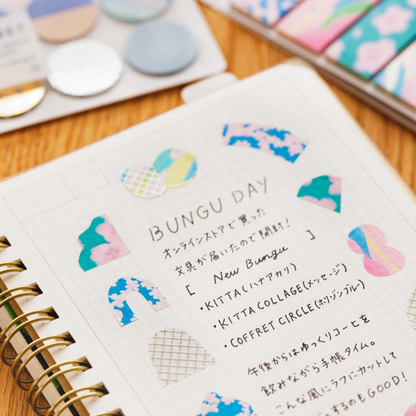 BUNGU DAY
オンラインストアで買った
文具が届いたので開封!
[ New Bungu ]
・KITTA(ハナアカリ)
・KITTA COLLAGE(メッセージ)
・COFFRET CIRCLE(ホリゾンブルー)
午後からはゆっくりコーヒーを
飲みながら手帳タイム。
こんな風にラフにカットして
まるのもGOOD!